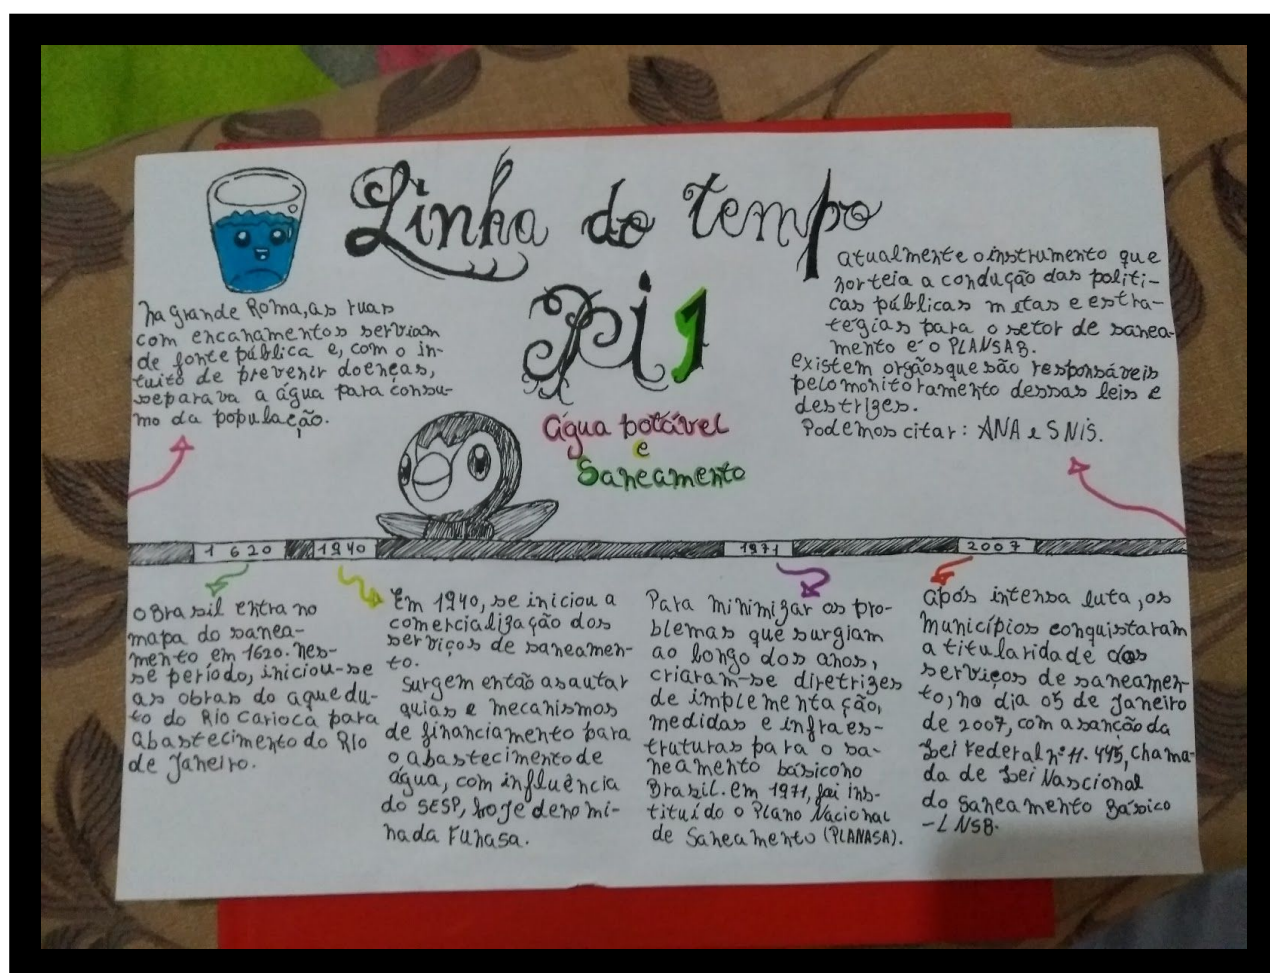 Linha do tempo
PI 1
água potável
e
Saneamento
na grande Roma, as ruas
com encanamentos serviam
de fonte pública e, com o in-
tuito de prevenir doenças,
separava a água para consu-
mo da população.
atualmente o instrumento que
norteia a condução das politi-
cas públicas metas e estra-
tégias para o setor de sanea-
mento é o PLANSAB.
existem orgãos que são responsáveis
pelo monitoramento dessas leis e
destrizes.
Podemos citar: ANA e SNIS.
1620
1940
1971
2007
o Brasil entra no
mapa do sanea-
mento em 1620. nes-
se período, iniciou-se
as obras do aquedu-
to do Rio Carioca para
abastecimento do Rio
de Janeiro.
Em 1940, se iniciou a
comercialização dos
serviços de saneamen-
to.
surgem então as autar
quias e mecanismos
de financiamento para
o abastecimento de
água, com influência
do SESP, hoje denomi-
nada Funasa.
Para minimizar os pro-
blemas que surgiam
ao longo dos anos,
criaram-se diretrizes
de implementação,
medidas e infraes-
truturas para o sa-
neamento básico no
Brasil. em 1971, foi ins-
tituído o Plano Nacional
de Saneamento (PLANASA).
após intensa luta, os
municípios conquistaram
a titularidade dos
serviços de saneamen-
to, no dia 05 de Janeiro
de 2007, com a sanção da
Lei Federal nº 11.445, chama-
da de Lei Nascional
do Saneamento Básico
-LNSB.